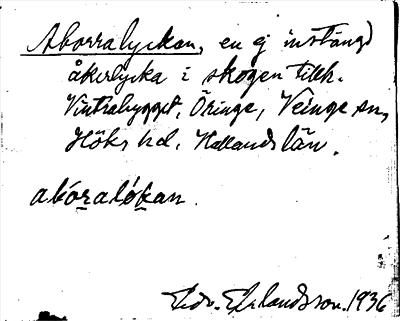 Aborralyckan, en ej instängd
åkerlycka i skogen tillh.
Vintrabygget, Öringe, Veinge sn,
Höks hd. Hallands län.
abóraló̱kan.
Edv. Erlandsson. 1936